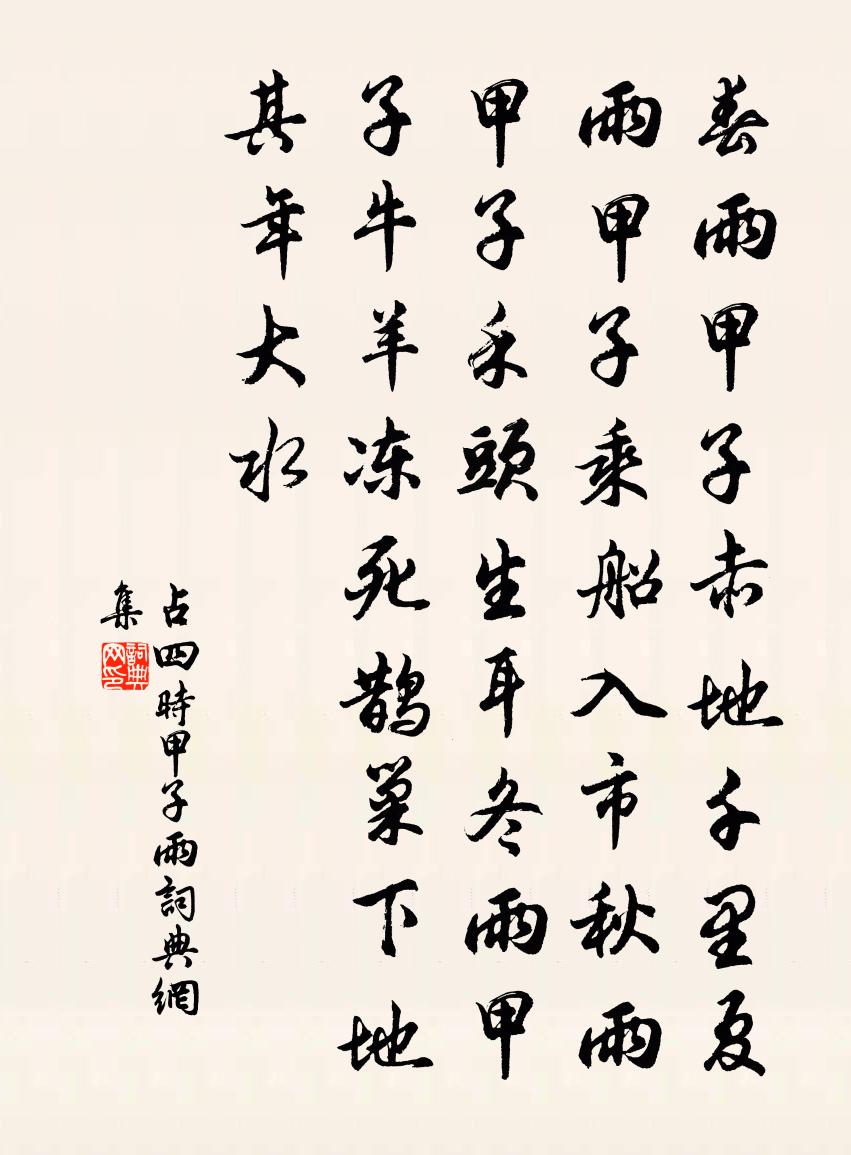 春雨甲子赤地千里夏
雨甲子乘船入市秋雨
甲子禾頭生耳冬雨甲
子牛羊冻死鹊巢下地
其年大水
占四時甲子雨詞典網
集
詞典
网印